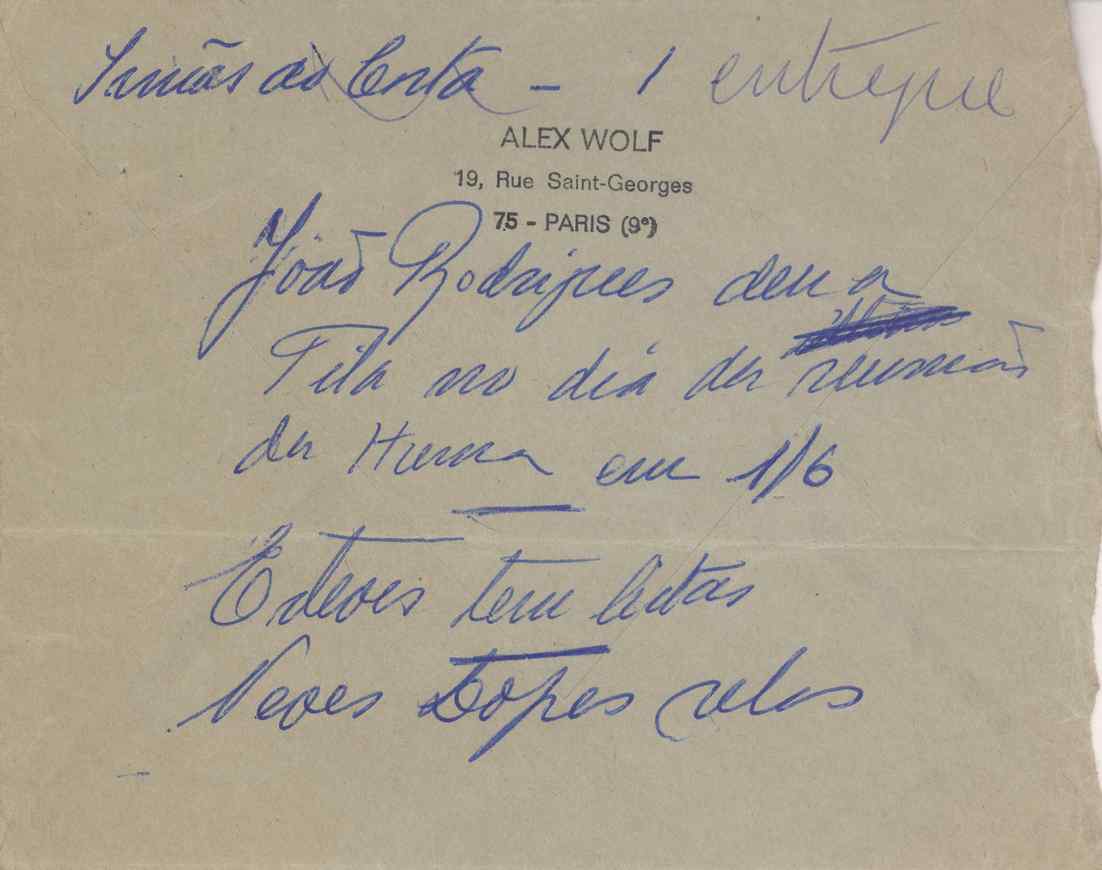 Simões da Costa - 1 entregue
ALEX WOLF
19, Rue Saint-Georges
75 - PARIS (9e)
João Rodrigues deu a
Tila no dia da reunião
da Huma em 1/6
Esteves tem listas
Neves Lopes selos